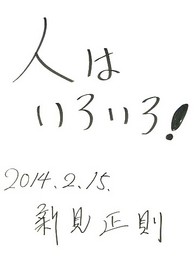 人は
いろいろ!
2014.2.15.
新見正則